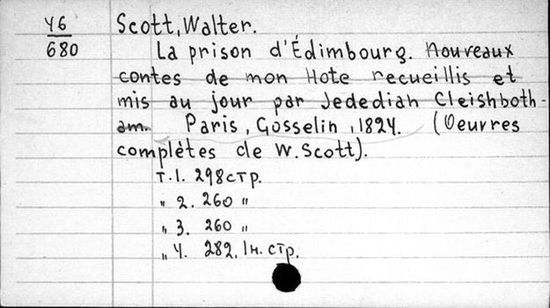 У6
680
Scott, Walter.
La prison d'Édimbourg. Nouveaux
contes de mon Hote recueillis et
mis au jour par Jedediah Cleishboth-
am. Paris, Gosselin, 1824. (Oeuvres
complètes de W. Scott).
т. 1. 298 стр.
„ 2. 260 „
„ 3. 260 „
„ 4. 282, 1н. стр.